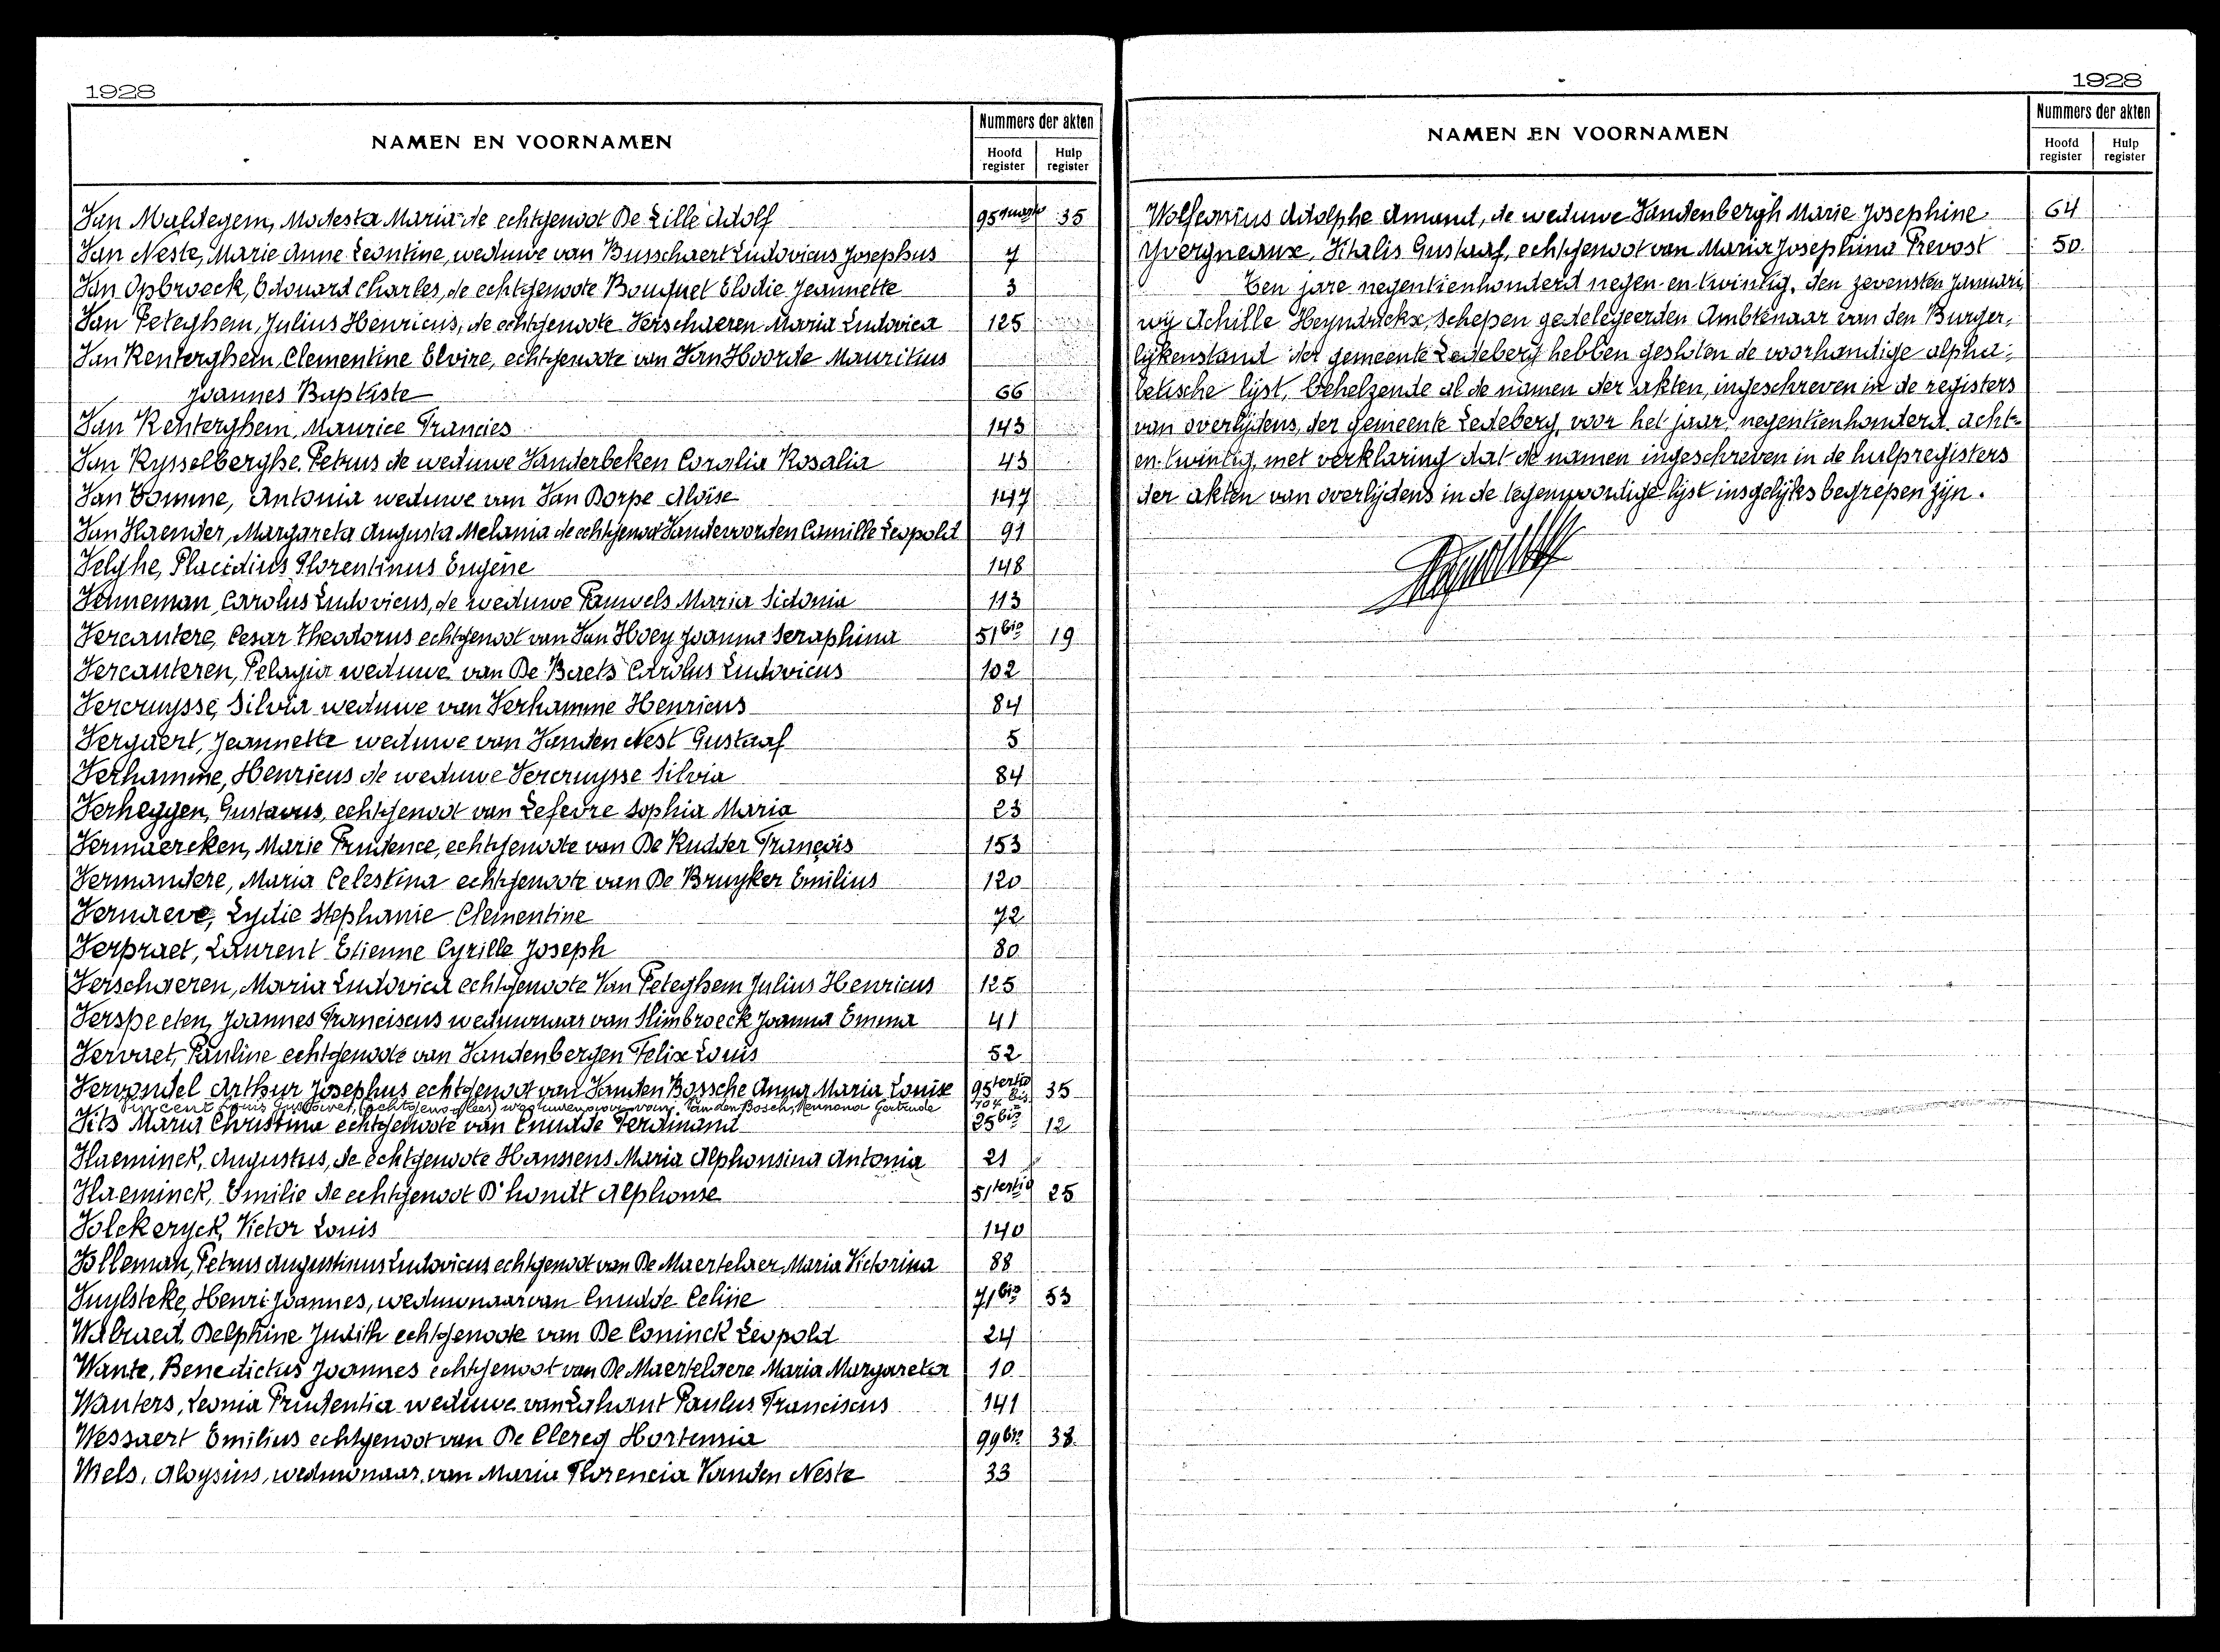 1928
NAMEN EN VOORNAMEN
Nummers der akten
Hoofd register
Hulp register
Van Maldegem, Modesta Maria de echtgenoot De Lille Adolf 95 quater 35
Van Neste, Marie Anne Leontine, weduwe van Busschaert Ludovicus Josephus 7
Van Opbroeck, Edouard Charles, de echtgenoote Bouquet Elodie Jeannette 3
Van Peteghem, Julius Henricus, de echtgenoote Verschaeren Maria Ludovica 125
Van Renterghem, Clementine Elvire, echtgenoote van Van Hoorde Mauritius
Joannes Baptiste 66
Van Renterghem, Maurice Francies 143
Van Rysselberghe, Petrus de weduwe Vanderbeken Coralia Rosalia 43
Van Tomme, Antonia weduwe van Van Dorpe Aloïse 147
Van Vlaender, Margareta Augusta Melania de echtgenoot Vandevoorden Camille Leopold 91
Velghe, Placidius Florentinus Eugène 148
Venneman, Carolus Ludovicus, de weduwe Pauwels Maria Sidonia 113
Vercautere, Cesar Theodorus echtgenoot van Van Hoey Joanna Seraphina 51 bis 19
Vercauteren, Pelagia weduwe van De Baets Carolus Ludovicus 102
Vercruysse, Silvia weduwe van Verhamme Henricus 84
Vergaert, Jeannette weduwe van Vanden Nest Gustaaf 5
Verhamme, Henricus de weduwe Vercruysse Silvia 84
Verheggen, Gustavus, echtgenoot van Lefevre Sophia Maria 23
Vermaercken, Marie Prudence, echtgenoote van De Rudder François 153
Vermandere, Maria Celestina echtgenoote van De Bruyker Emilius 120
Vernaeve, Lydie Stephanie Clementine 72
Verpraet, Laurent Etienne Cyrille Joseph 80
Verschaeren, Maria Ludovica echtgenoote Van Peteghem Julius Henricus 125
Verspeeten, Joannes Franciscus weduwnaar van Slimbroeck Joanna Emma 41
Vervaet, Pauline echtgenoote van Vandenbergen Felix Louis 52
Vervondel Arthur Josephus echtgenoot van Vanden Bossche Anna Maria Louise 95 tertio 35
Vincent Louis Gustave, van Vanden Bosch, Gertrude 104 bis
Vits Maria Christina echtgenoote van Cnudde Ferdinand 25 bis 12
Vlaeminck, Augustus, de echtgenoote Hanssens Maria Alphonsina Antonia 21
Vlaeminck, Emilie de echtgenoot D'hondt Alphonse 51 tertio 25
Volckeryck, Victor Louis 140
Volleman, Petrus Augustinus Ludovicus echtgenoot van De Maertelaer Maria Victorina 88
Vuylsteke, Henri Joannes, weduwnaar van Cnudde Celine 71 bis 53
Walraed, Delphine Judith echtgenoote van De Coninck Leopold 24
Wante, Benedictus Joannes echtgenoot van De Maertelaere Maria Margareta 10
Wauters, Leonia Prudentia weduwe van Lahaut Paulus Franciscus 141
Wessaert Emilius echtgenoot van De Clercq Hortensia 99 bis 38
Wiels, Aloysius, weduwnaar van Maria Florencia Vanden Neste 33
1928
NAMEN EN VOORNAMEN
Nummers der akten
Hoofd register
Hulp register
Adolphe Amand, de weduwe Vandenbergh Marie Josephine 64
Yvergneaux, Vitalis Gustaaf, echtgenoot van Maria Josephina Prevost 50
Ten jare negentienhonderd negen-en-twintig, den zevensten Januari,
wij Achille Heyndrickx, Schepen gedelegeerden Ambtenaar van den Burger-
lijkenstand der gemeente Ledeberg hebben gesloten de voorhandige alpha-
betische lijst, behelzende al de namen der akten, ingeschreven in de registers
van overlijdens, der gemeente Ledeberg, voor het jaar negentienhonderd acht-
en-twintig, met verklaring dat de namen ingeschreven in de hulpregisters
der akten van overlijdens in de tegenwoordige lijst insgelijks begrepen zijn.